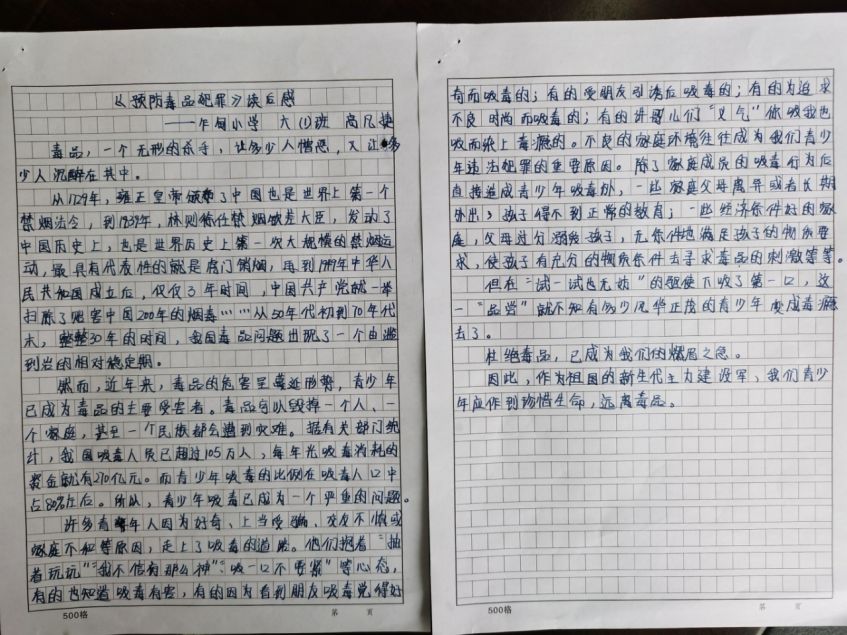 《预防毒品犯罪》读后感
——乍甸小学 六(1)班 高凡捷
毒品,一个无形的杀手,让多少人憎恶,又让多
少人沉醉在其中。
从1729年,雍正皇帝颁布了中国也是世界上第一个
禁烟法令,到1839年,林则徐任禁烟钦差大臣,发动了
中国历史上,也是世界历史上第一次大规模的禁烟运
动,最具有代表性的就是虎门销烟,再到1949年中华人
民共和国成立后,仅仅3年时间,中国共产党就一举
扫除了危害中国200年的烟毒……从50年代初到70年代
末,整整30年的时间,我国毒品问题出现了一个由滥
到岩的相对稳定期。
然而,近年来,毒品的危害呈蔓延形势,青少年
已成为毒品的主要受害者。毒品可以毁掉一个人、一
个家庭,甚至一个民族都会遭到灾难。据有关部门统
计,我国吸毒人员已超过105万人,每年光吸毒消耗的
资金就有270亿元。而青少年吸毒的比例在吸毒人口中
占80%左右。所以,青少年吸毒已成为一个严重的问题。
许多青年人因为好奇、上当受骗、交友不慎或
家庭不和等原因,走上了吸毒的道路。他们抱着“抽
着玩玩”“我不信有那么神”“吸一口不要紧”等心态,
有的也知道吸毒有害,有的因为看到朋友吸毒觉得好
奇而吸毒的;有的受朋友引诱后吸毒的;有的为追求
不良时尚而吸毒的;有的讲哥儿们“义气”你吸我也
吸而染上毒瘾的。不良的家庭环境往往成为我们青少
年违法犯罪的重要原因。除了家庭成员的吸毒行为后
直接造成青少年吸毒外,一些家庭父母离异或者长期
外出,孩子得不到正常的教育;一些经济条件好的家
庭,父母过分溺爱孩子,无条件地满足孩子的物质要
求,使孩子有充分的物质条件去寻求毒品的刺激等等。
但在“试一试也无妨”的驱使下吸了第一口,这
一“品尝”就不知有多少风华正茂的青少年变成毒瘾
去了。
杜绝毒品,已成为我们的燃眉之急。
因此,作为祖国的新生代主力建设军,我们青少
年应作到珍惜生命,远离毒品。
500格
第 页
500格
第 页